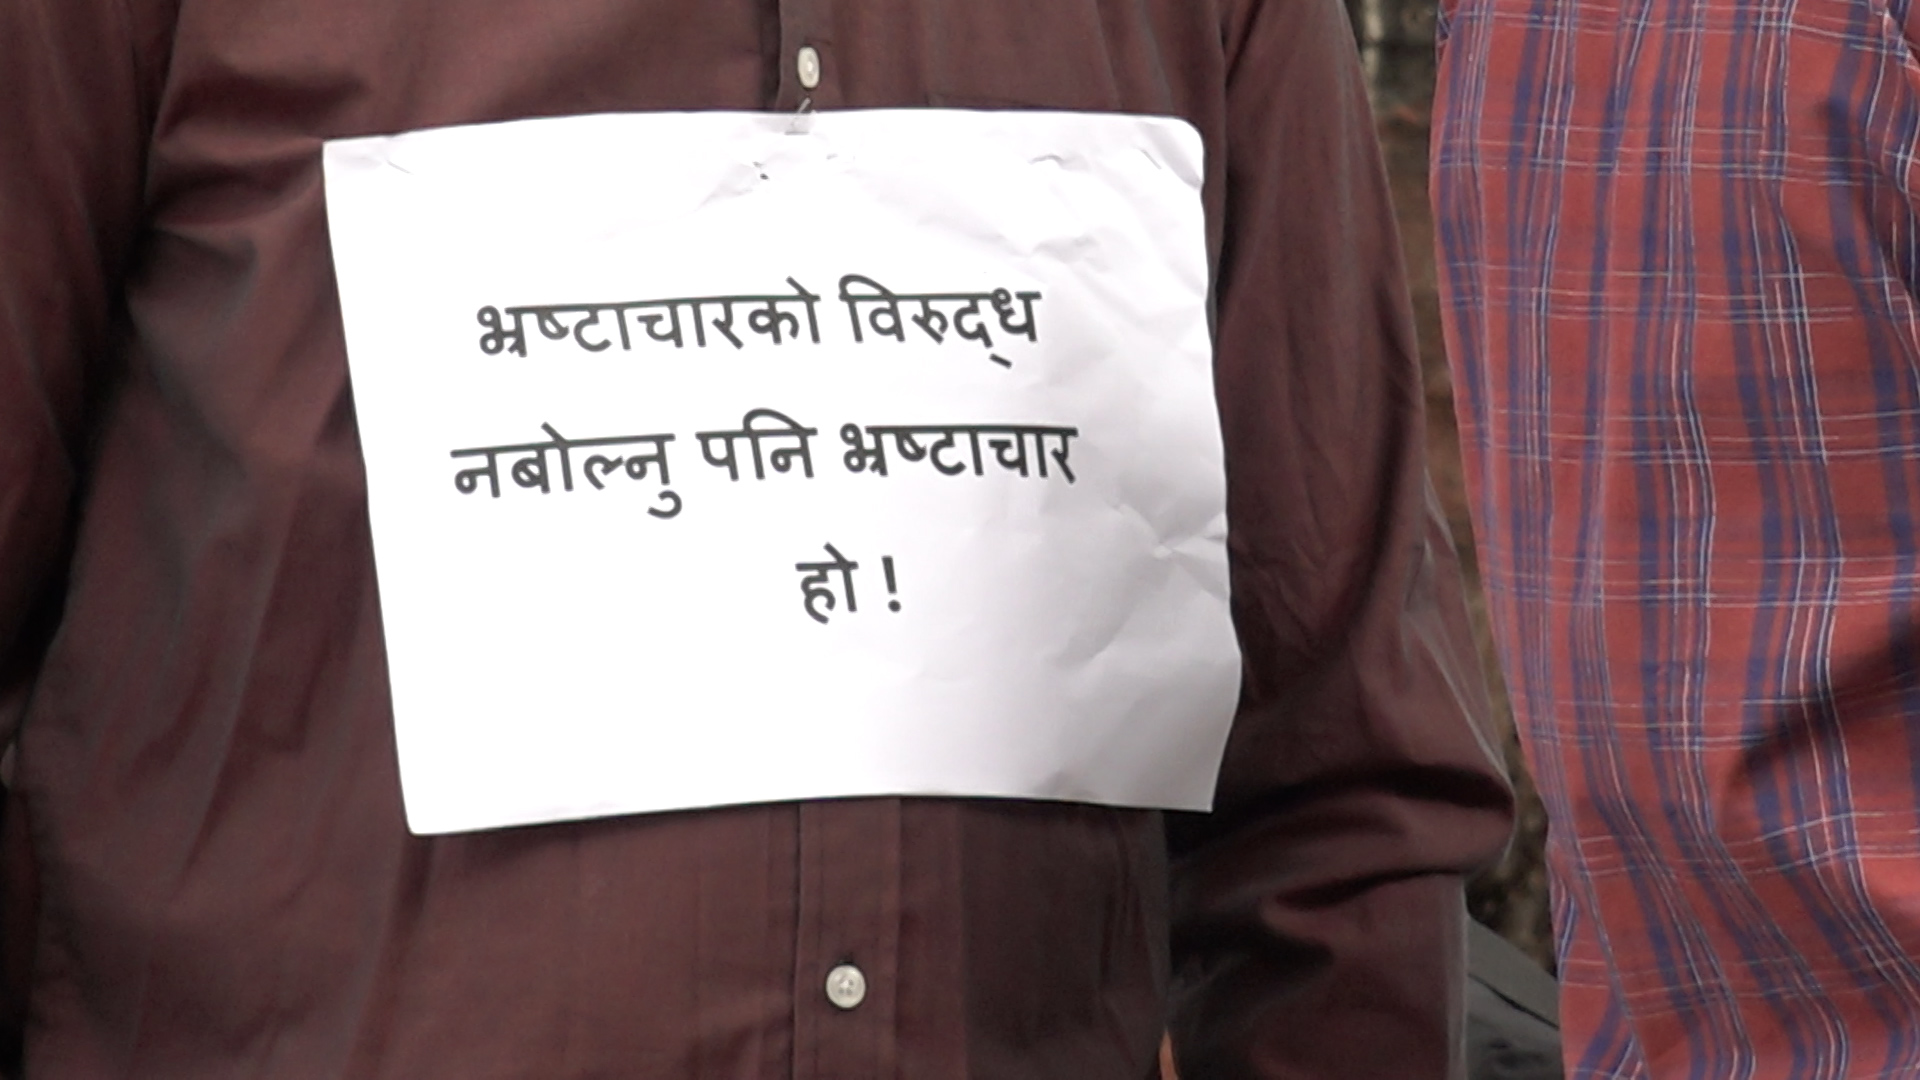 भ्रष्टाचारको विरुद्ध
नबोल्नु पनि भ्रष्टाचार
हो !